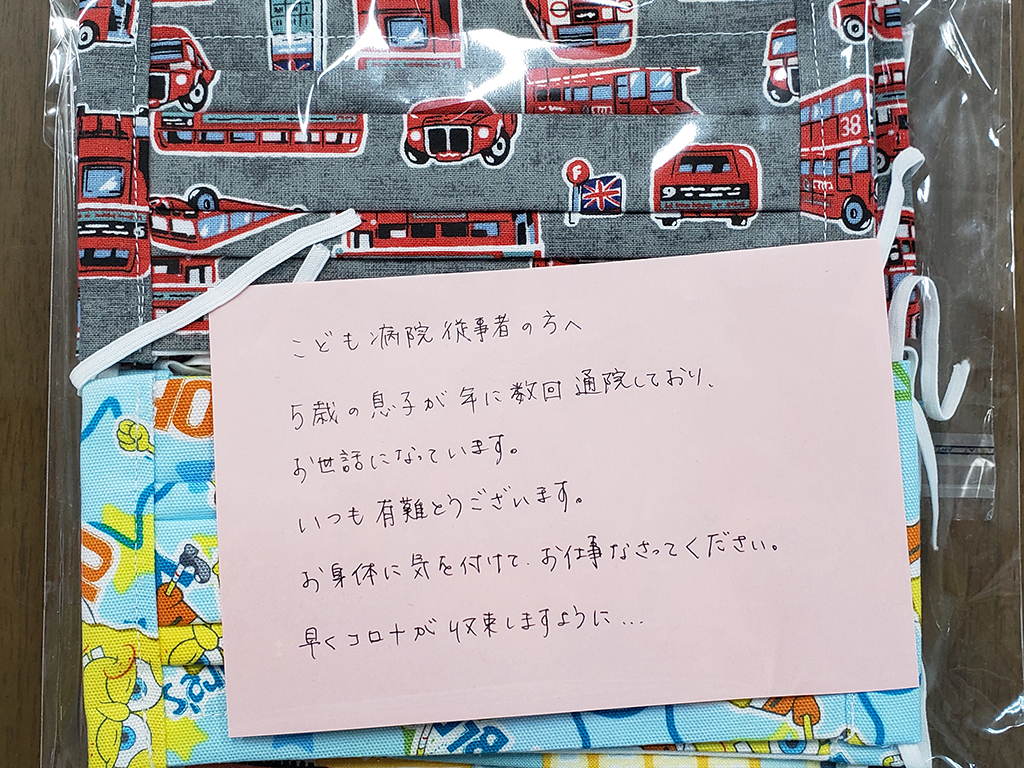 38
F
9
こども病院従事者の方へ
5歳の息子が年に数回通院しており、
お世話になっています。
いつも有難とうございます。
お身体に気を付けて、お仕事なさってください。
早くコロナが収束しますように...